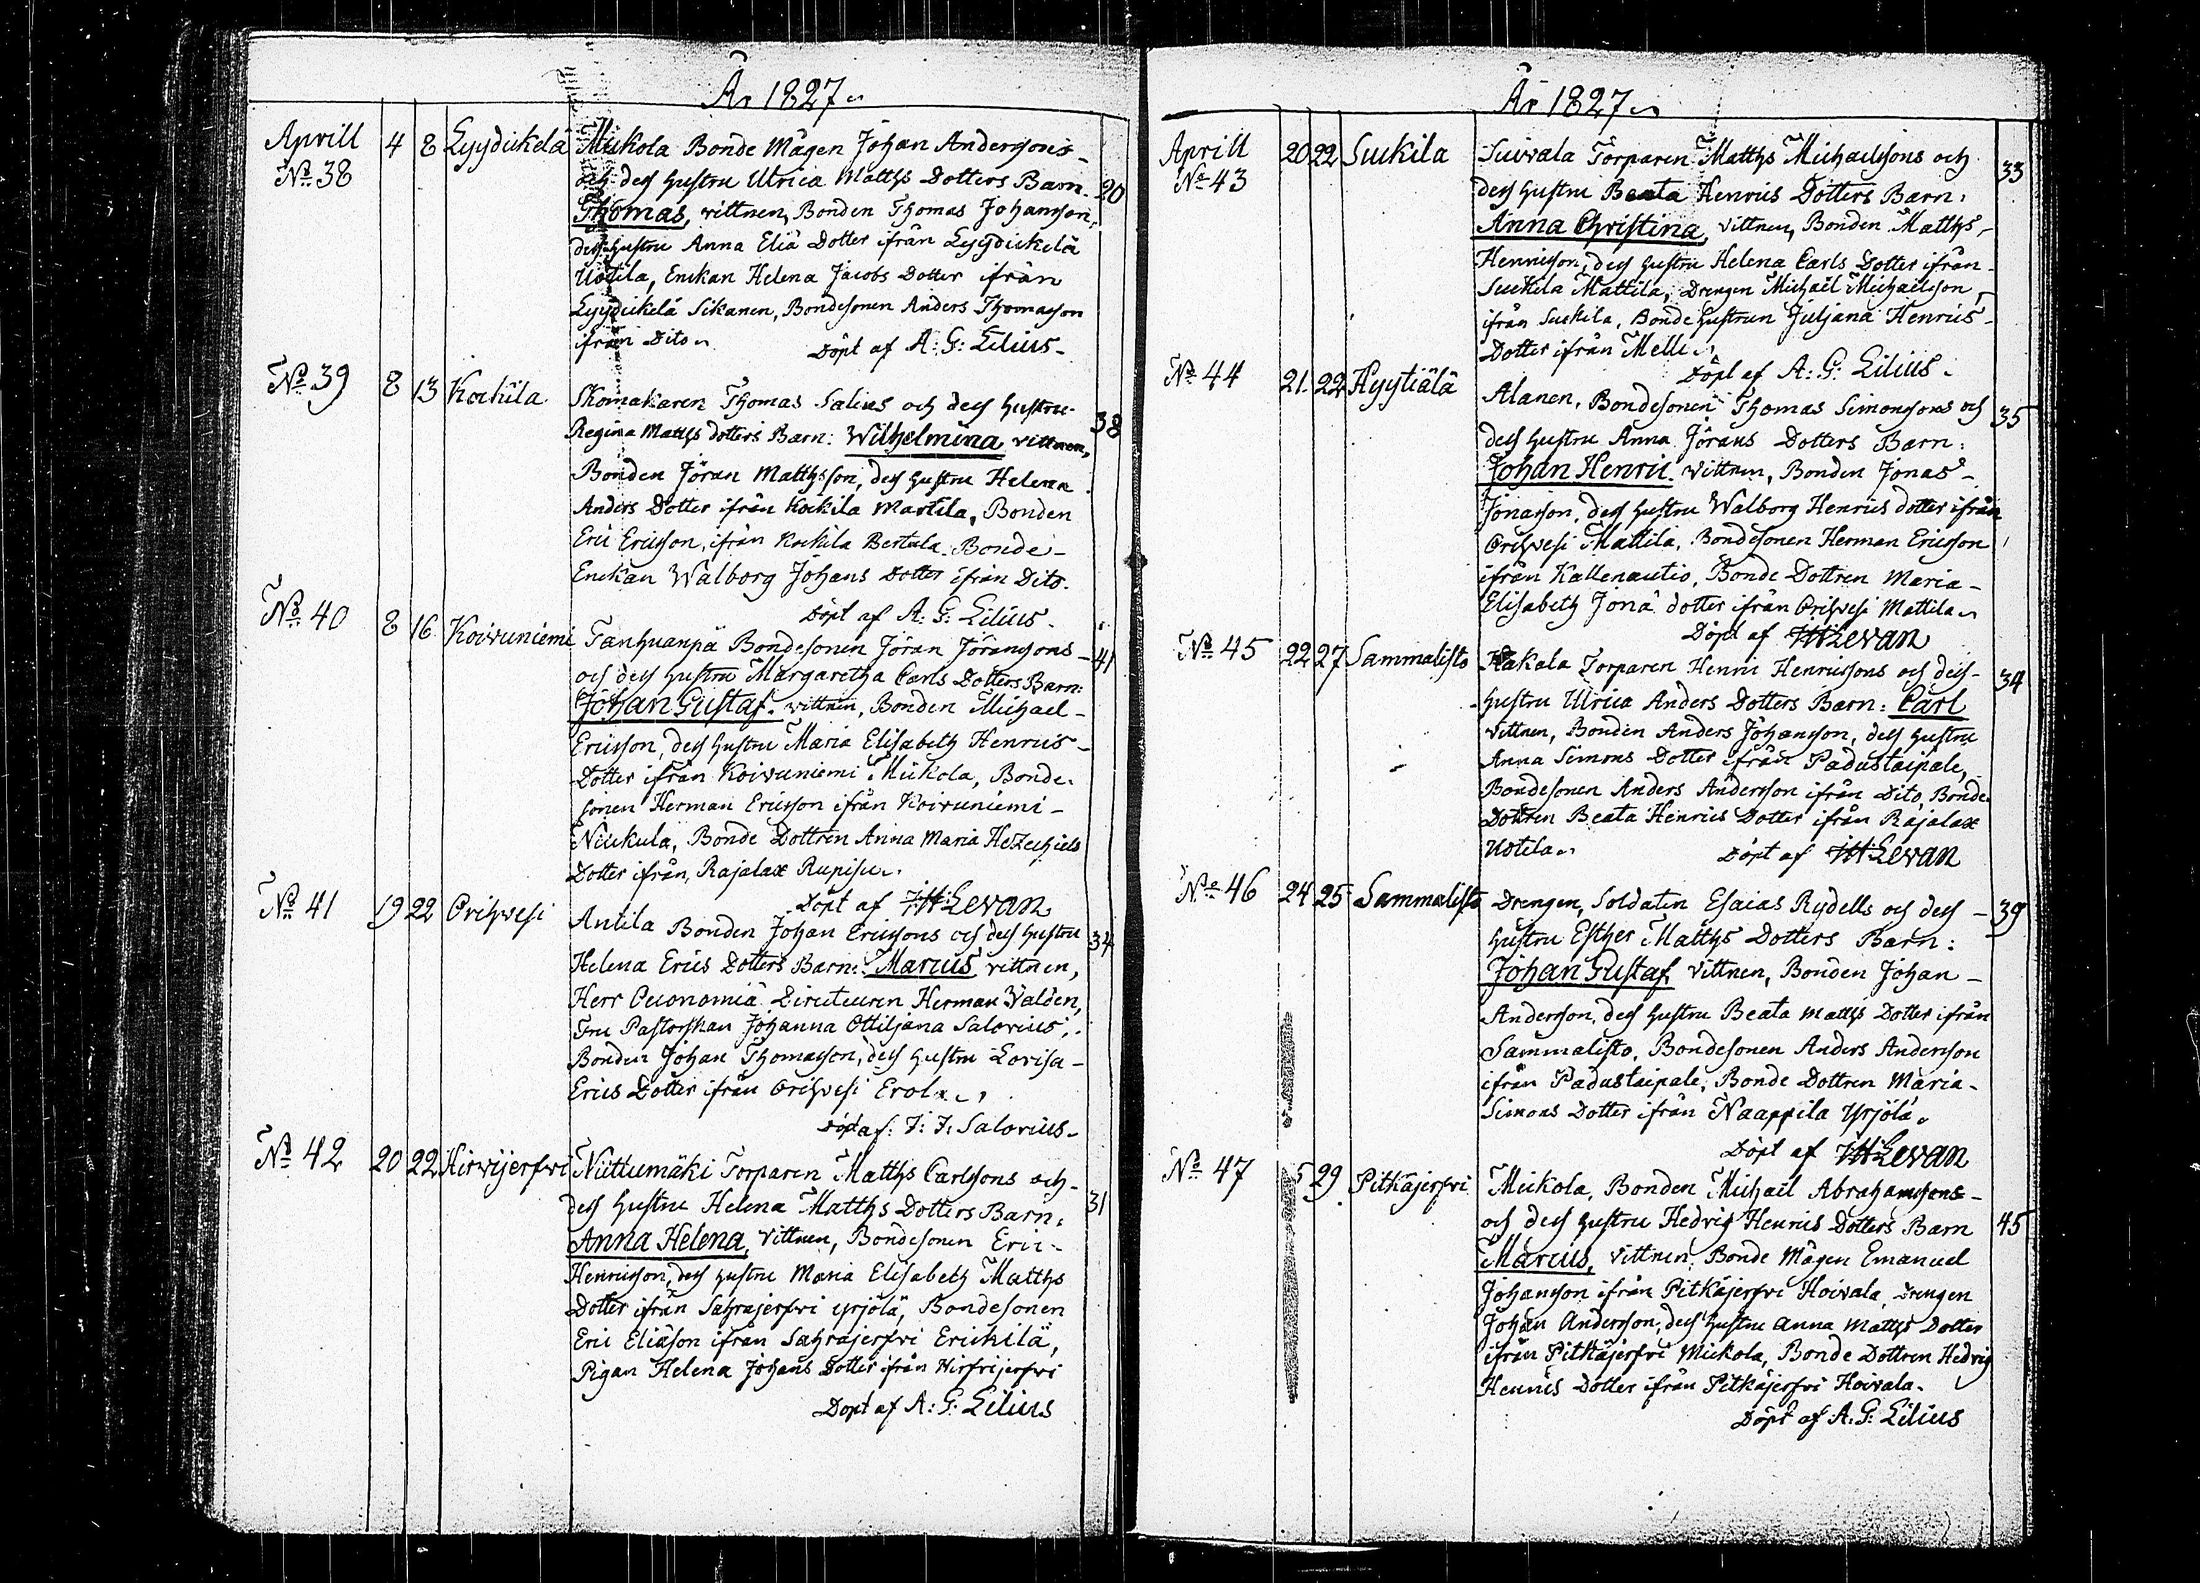 År 1827
Aprill 4 8 Lyydickelä Mickola Bonde Mågen Johan Andersons
N:o 38 och dess hustru Ulrica Matths Dotters Barn 20
Thomas, vittnen, Bonden Thomas Johansson,
dess hustru Anna Eliæ Dotter ifrån Lyydickelä
Uotila, Enckan Helena Jacobs Dotter ifrån
Lyydickelä Sikanen, Bondesonen Anders Thomasson
ifrån Dito
Döpt af A: G: Lilius
N:o 39 8 13 Kockila Skomakaren Thomas Salins och dess hustru 38
Regina Matths dotters Barn: Wilhelmina vittnen,
Bonden Jöran Matthsson, dess hustru Helena
Anders Dotter ifrån Kockila Martila, Bonden
Eric Ericsson, ifrån Kockila Bertula Bonde
Enckan Walborg Johans Dotter ifrån Dito.
Döpt af A: G: Lilius
N:o 40 8 16 Koivuniemi Tanhuanpä Bondesonen Jöran Jöransons 41
och dess hustru Margaretha Carls Dotters Barn:
Johan Gustaf. vittnen, Bonden Michael
Ericsson, dess hustru Maria Elisabeth Henrics
Dotter ifrån Koivuniemi Mickola, Bonde
sonen Herman Ericsson ifrån Koivuniemi
Niukula, Bonde Dottren Anna Maria Hezechiels
Dotter ifrån, Rajalax Rupisu.
Döpt af Levan
N:o 41 19 22 Orihvesi Antila Bonden Johan Ericssons och dess hustru 34
Helena Erics Dotters Barn: Marcus vittnen,
Herr Oeconomiæ Directeuren Herman Walden,
Fru Pastorskan Johanna Ottiljana Salovius,
Bonden Johan Thomasson, dess hustru Lovisa
Erics Dotter ifrån Orihvesi Erola
Döpt af: J: J: Salovius
N:o 42 20 22 Hirvijerfvi Niittumäki Torparen Matths Carlssons och 31
dess hustru Helena Matths Dotters Barn:
Anna Helena, vittnen, Bondesonen Eric
Henricsson, dess hustru Maria Elisabeth Matths
Dotter ifrån Sahrajerfvi Yrjölä, Bondesonen
Eric Eliæson ifrån Sahrajerfvi Erickilä,
Pigan Helena Johans Dotter ifrån Hirfvijerfvi
Döpt af A: G: Lilius
År 1827
Aprill 20 22 Suckila Suivala Torparen Matths Michaelssons och 33
N:o 43 dess hustru Beata Henrics Dotters Barn:
Anna Christina, vittnen, Bonden Matths
Henricsson, dess hustru Helena Carls Dotter ifrån
Suckila Mattila, Drengen Michaël Michaelsson,
ifrån Suckila, Bonde hustrun Juljana Henrics
Dotter ifrån Melli
Döpt af A: G: Lilius
N:o 44 21 22 Hyytiälä Alanen, Bondesonen Thomas Simonssons och 35
dess hustru Anna Jörans Dotters Barn:
Johan Henric. vittnen, Bonden Jonas
Jonasson, dess hustru Walborg Henrics dotter ifrån
Orihvesi Mattila, Bondesonen Herman Ericsson
ifrån Kallenautio, Bonde Dottren Maria
Elisabeth Jonæ dotter ifrån Orihvesi Mattila
Döpt af Levan
N:o 45 22 27 Sammalisto Hakala Torparen Henric Henricssons och dess 34
hustru Ulrica Anders Dotters Barn: Carl
vittnen, Bonden Anders Johansson, dess hustru
Anna Simons Dotter ifrån Padustaipale,
Bondesonen Anders Andersson ifrån Dito, Bonde
Dottren Beata Henrics Dotter ifrån Rajalax
Uotila
Döpt af Levan
N:o 46 24 25 Sammalisto Drengen, Soldaten Esaias Rydells och dess 39
hustru Esther Matths Dotters Barn:
Johan Gustaf, vittnen, Bonden Johan
Andersson, dess hustru Beata Matths Dotter ifrån
Sammalisto, Bondesonen Anders Andersson
ifrån Padustaipale, Bonde Dottren Maria
Simons Dotter ifrån Naappila Yrjölä
Döpt af Levan
N:o 47 5 29 Pitkäjerfvi Mickola, Bonden Michaël Abrahamssons
och dess hustru Hedvig Henrics Dotters Barn 45
Marcus, vittnen, Bonde Mågen Emanuel
Johansson ifrån Pitkäjerfvi Hoivala, Drengen
Johan Andersson, dess hustru Anna Matths Dotter
ifrån Pitkäjerfvi Mickola, Bonde Dottren Hedvig
Henrics Dotter ifrån Pitkäjerfvi Hoivala.
Döpt af A: G: Lilius